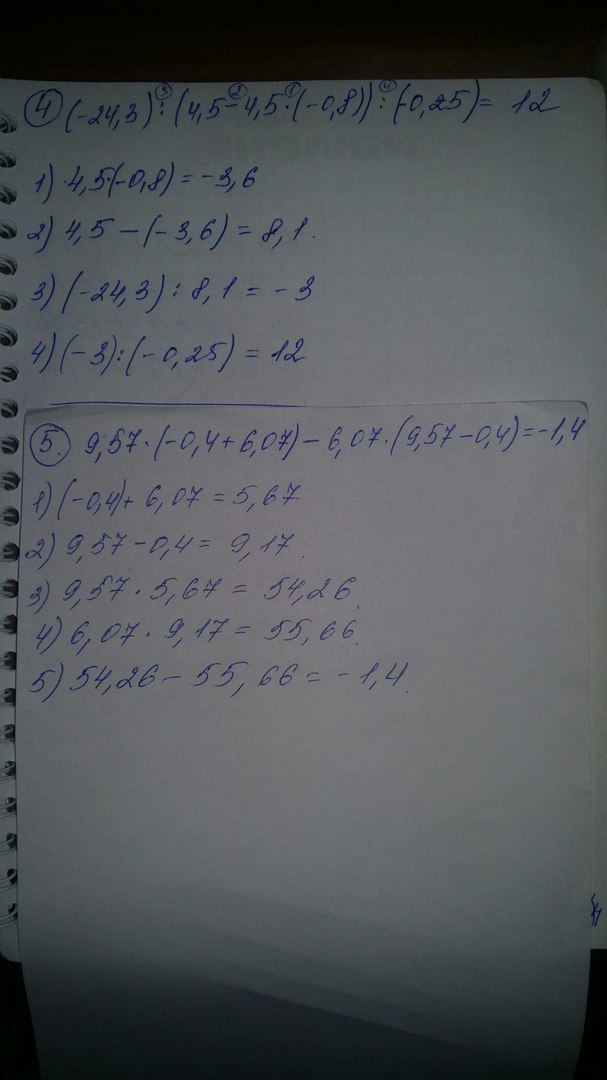 4 (-24,3) : (4,5 - 4,5 · (-0,8)) : (-0,25) = 12
1) 4,5·(-0,8) = -3,6
2) 4,5 - (-3,6) = 8,1.
3) (-24,3) : 8,1 = -3
4) (-3) : (-0,25) = 12
5. 9,57 · (-0,4 + 6,07) - 6,07 · (9,57 - 0,4) = -1,4
1) (-0,4) + 6,07 = 5,67
2) 9,57 - 0,4 = 9,17.
3) 9,57 · 5,67 = 54,26.
4) 6,07 · 9,17 = 55,66.
5) 54,26 - 55,66 = -1,4.